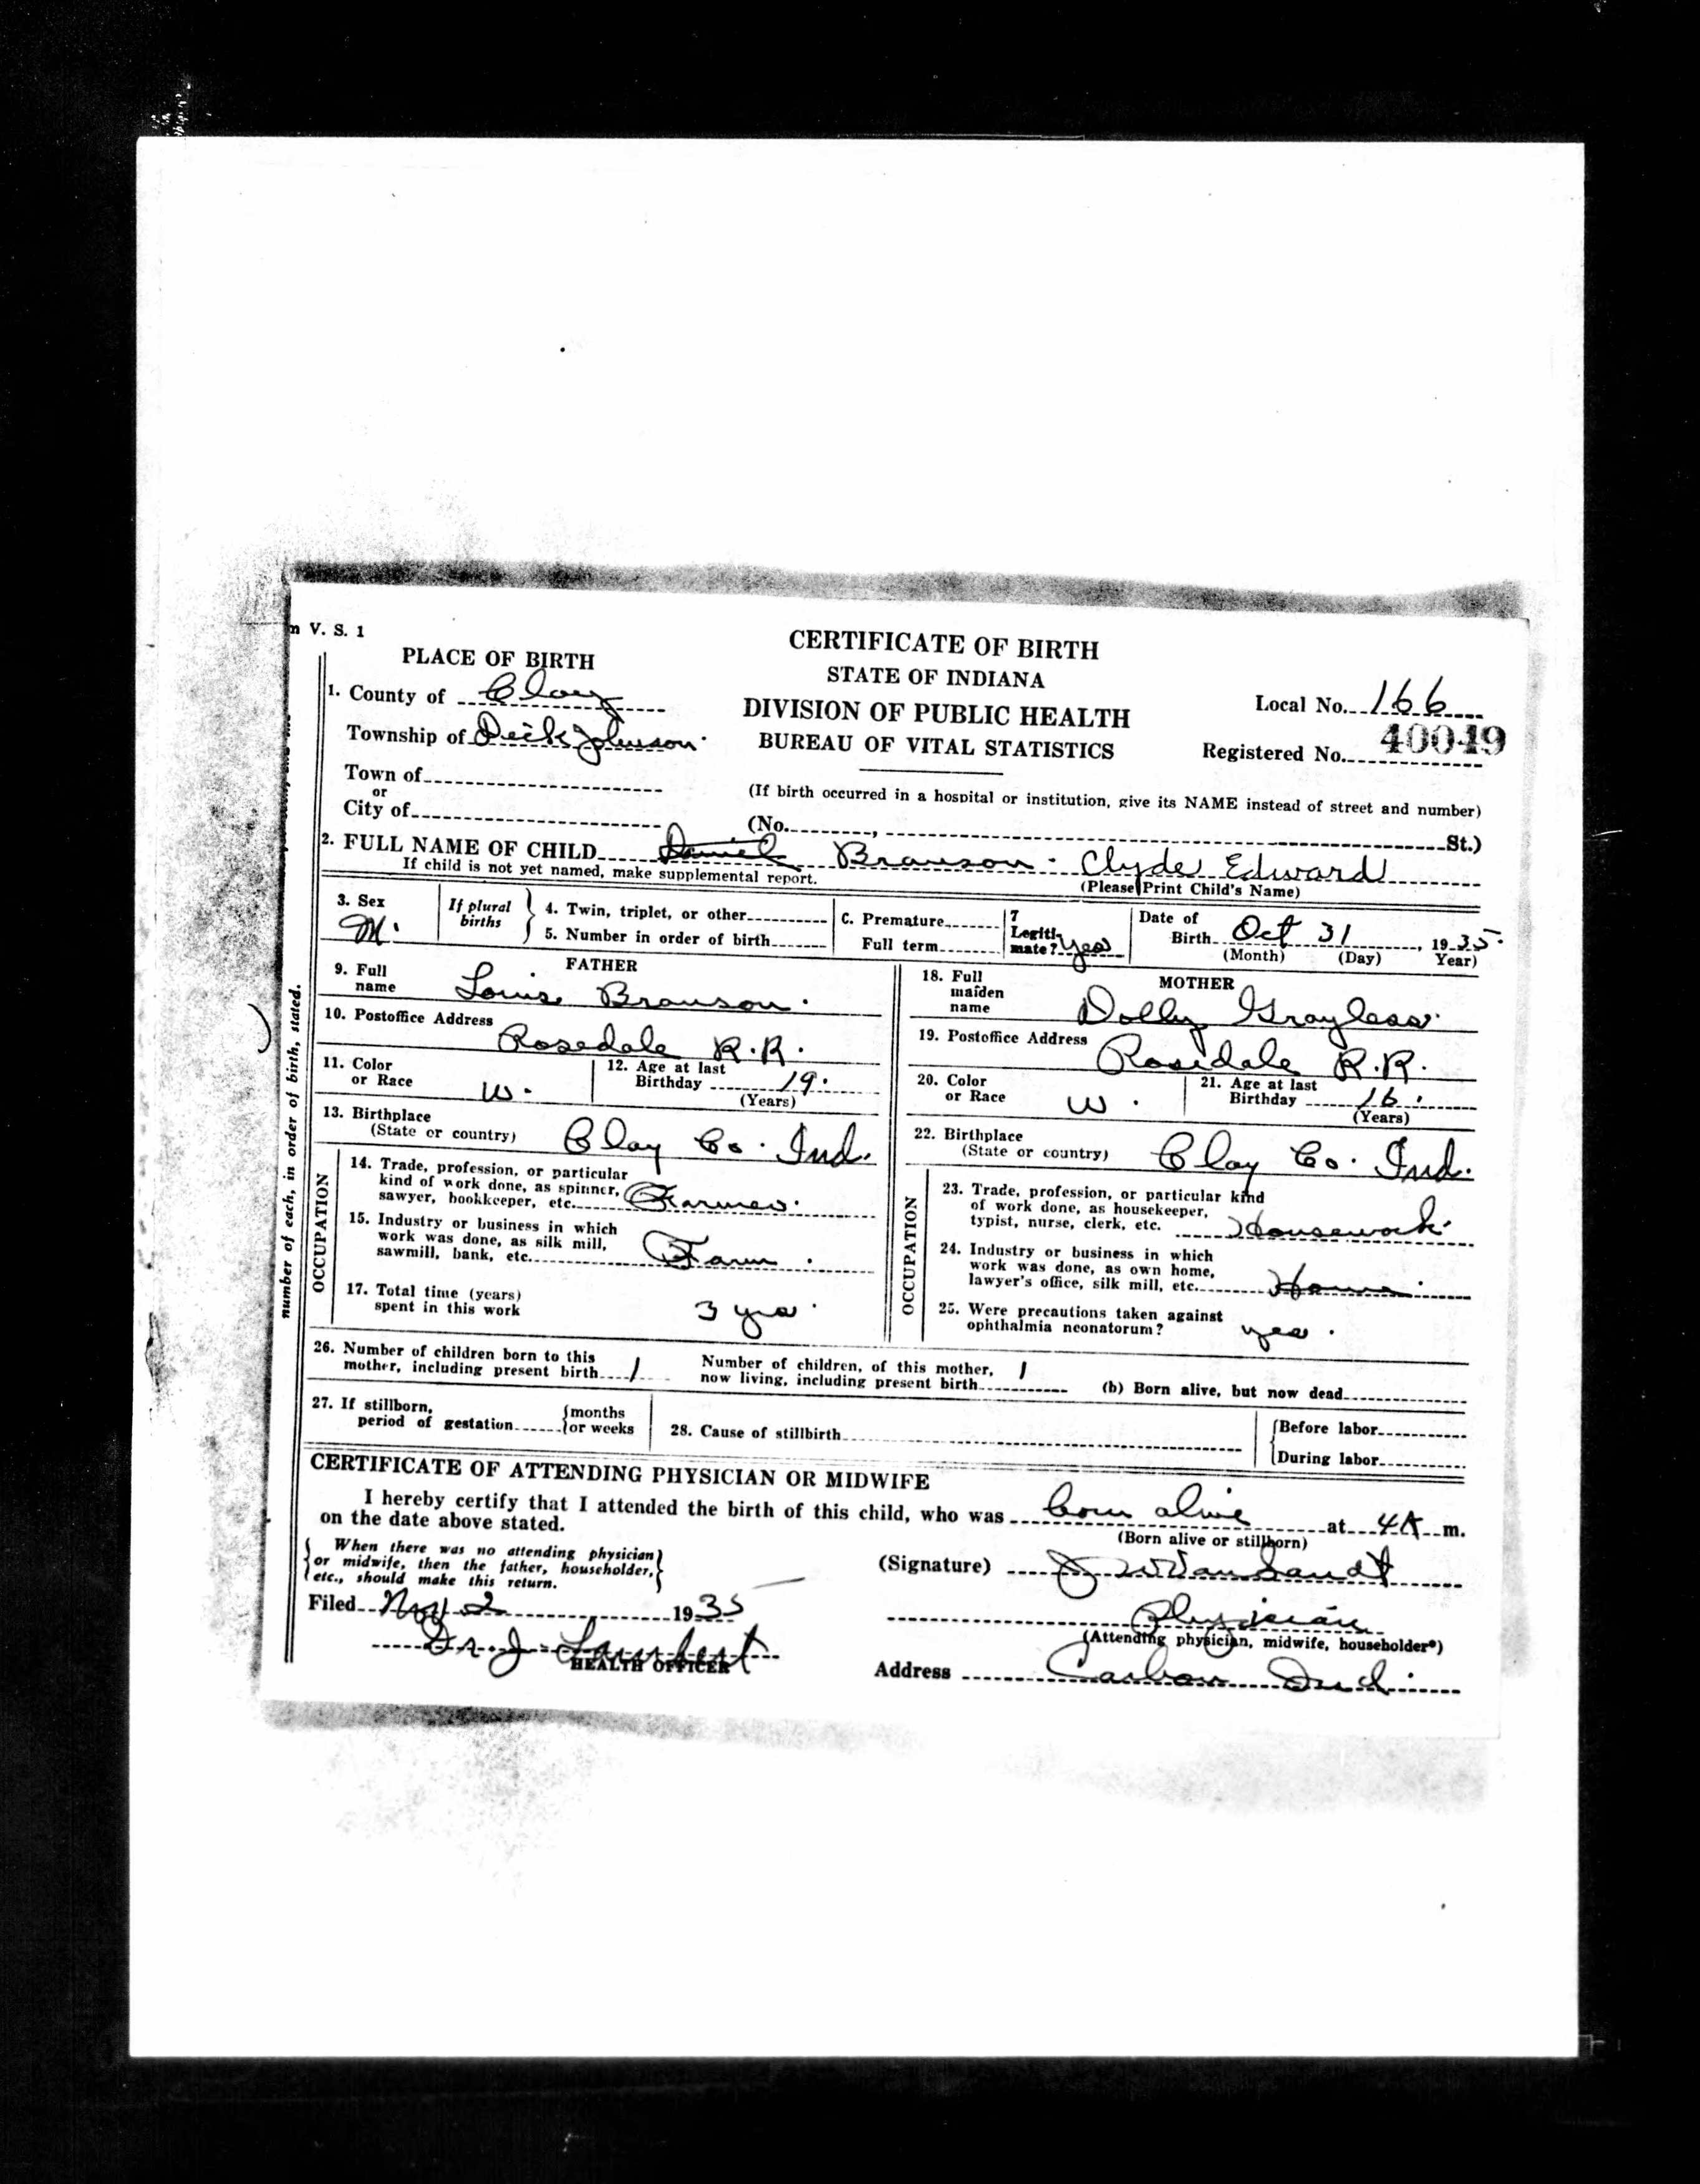 n V. S. 1
CERTIFICATE OF BIRTH
STATE OF INDIANA
DIVISION OF PUBLIC HEALTH
BUREAU OF VITAL STATISTICS
PLACE OF BIRTH
1. County of Clay
Township of Dick Johnson
Town of
or
City of
Local No. 166
Registered No. 40049
(If birth occurred in a hospital or institution, give its NAME instead of street and number)
(No. , St.)
2. FULL NAME OF CHILD Daniel Branson. Clyde Edward
If child is not yet named, make supplemental report.
(Please Print Child's Name)
3. Sex M.
If plural births
4. Twin, triplet, or other
5. Number in order of birth
C. Premature
Full term
7 Legiti-
mate? Yes
Date of
Birth Oct 31, 1935.
(Month) (Day) Year)
number of each, in order of birth, stated.
FATHER
9. Full
name Louis Branson.
10. Postoffice Address Rosedale R.R.
11. Color
or Race W.
12. Age at last
Birthday 19.
(Years)
13. Birthplace
(State or country) Clay Co. Ind.
OCCUPATION
14. Trade, profession, or particular
kind of work done, as spinner,
sawyer, bookkeeper, etc. Farmer.
15. Industry or business in which
work was done, as silk mill,
sawmill, bank, etc. Farm.
17. Total time (years)
spent in this work 3 yrs.
MOTHER
18. Full
maiden
name Dolly Grayless.
19. Postoffice Address Rosedale R.R.
20. Color
or Race W.
21. Age at last
Birthday 16.
(Years)
22. Birthplace
(State or country) Clay Co. Ind.
OCCUPATION
23. Trade, profession, or particular kind
of work done, as housekeeper,
typist, nurse, clerk, etc. Housework.
24. Industry or business in which
work was done, as own home,
lawyer's office, silk mill, etc. Home.
25. Were precautions taken against
ophthalmia neonatorum? yes.
26. Number of children born to this
mother, including present birth 1
Number of children, of this mother,
now living, including present birth 1
(b) Born alive, but now dead
27. If stillborn,
period of gestation {months
{or weeks
28. Cause of stillbirth
{Before labor
{During labor
CERTIFICATE OF ATTENDING PHYSICIAN OR MIDWIFE
I hereby certify that I attended the birth of this child, who was born alive at 4A m.
on the date above stated.
(Born alive or stillborn)
{When there was no attending physician}
{or midwife, then the father, householder,}
{etc., should make this return.}
(Signature) J W VanSandt
Physician
(Attending physician, midwife, householder*)
Address Carbon Ind.
Filed Nov 2 1935
Dr. J. Lambert
HEALTH OFFICER